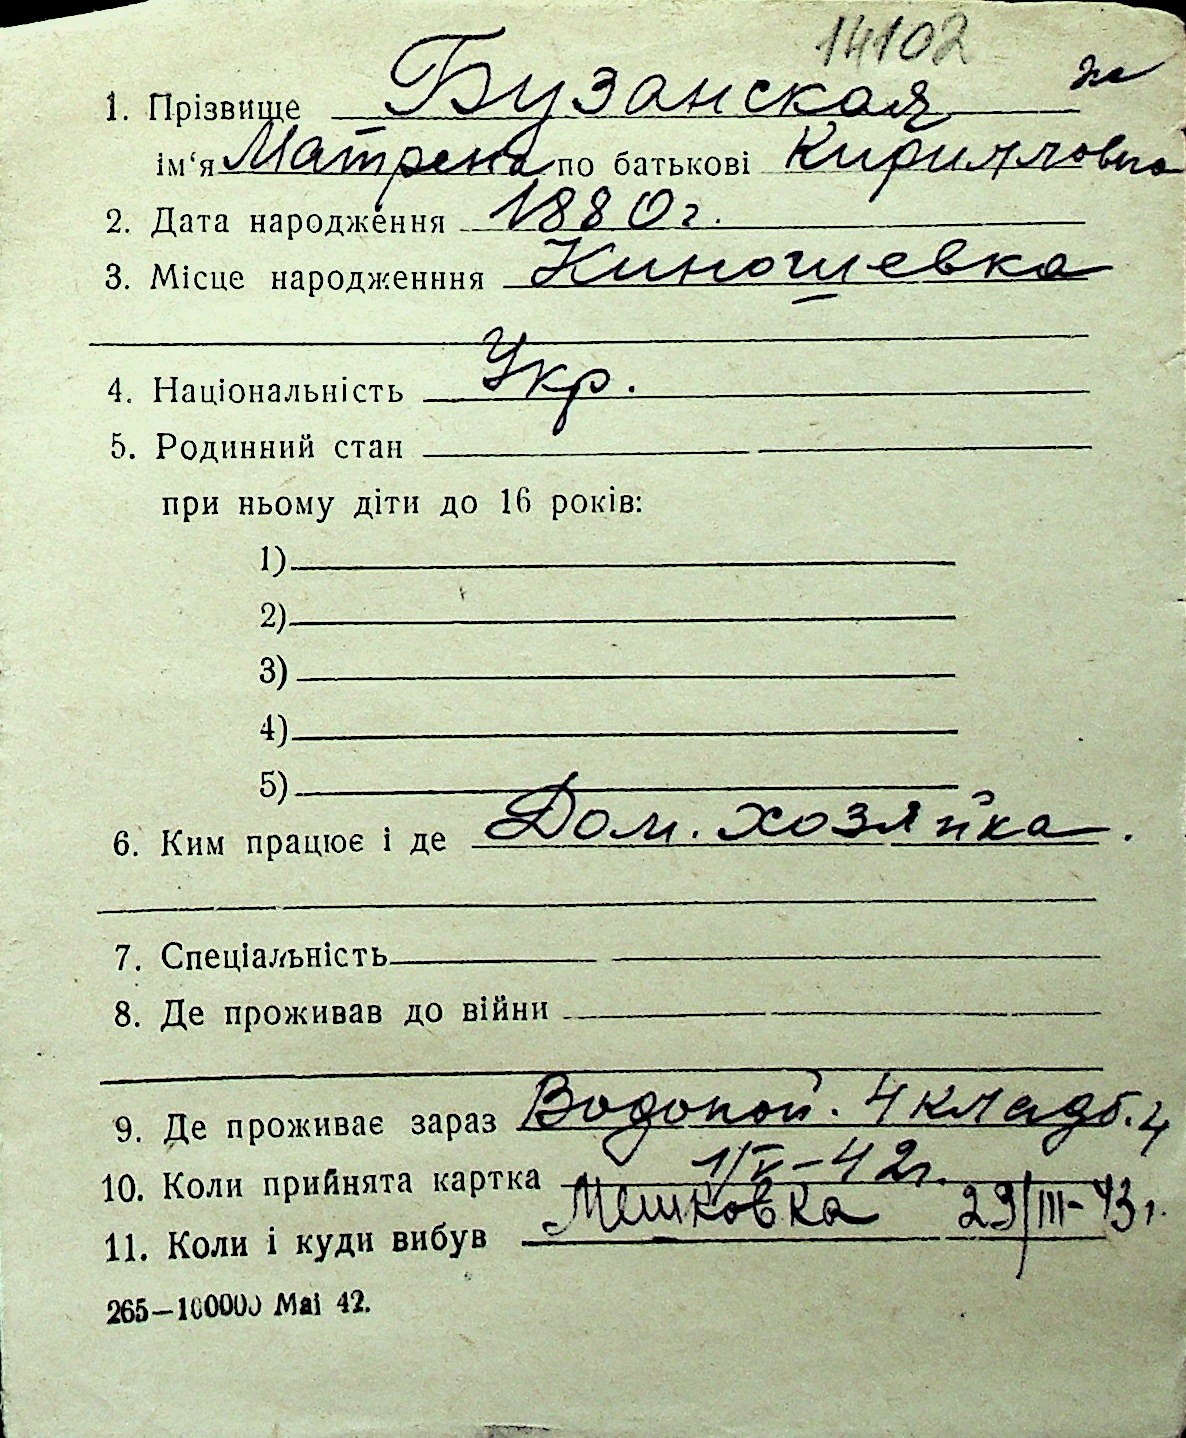 14102
1. Прізвище Бузанская
ім'я Матрена по батькові Кирилловна
2. Дата народження 1880 г.
3. Місце народженння Киношевка
4. Національність Укр.
5. Родинний стан
при ньому діти до 16 років:
1)
2)
3)
4)
5)
6. Ким працює і де Дом. хозяйка.
7. Спеціальність
8. Де проживав до війни
9. Де проживає зараз Водопой. 4 кладб. 4
10. Коли прийнята картка 1/V-42 г.
11. Коли і куди вибув Мешковка 29/III-43 г.
265—100000 Mai 42.